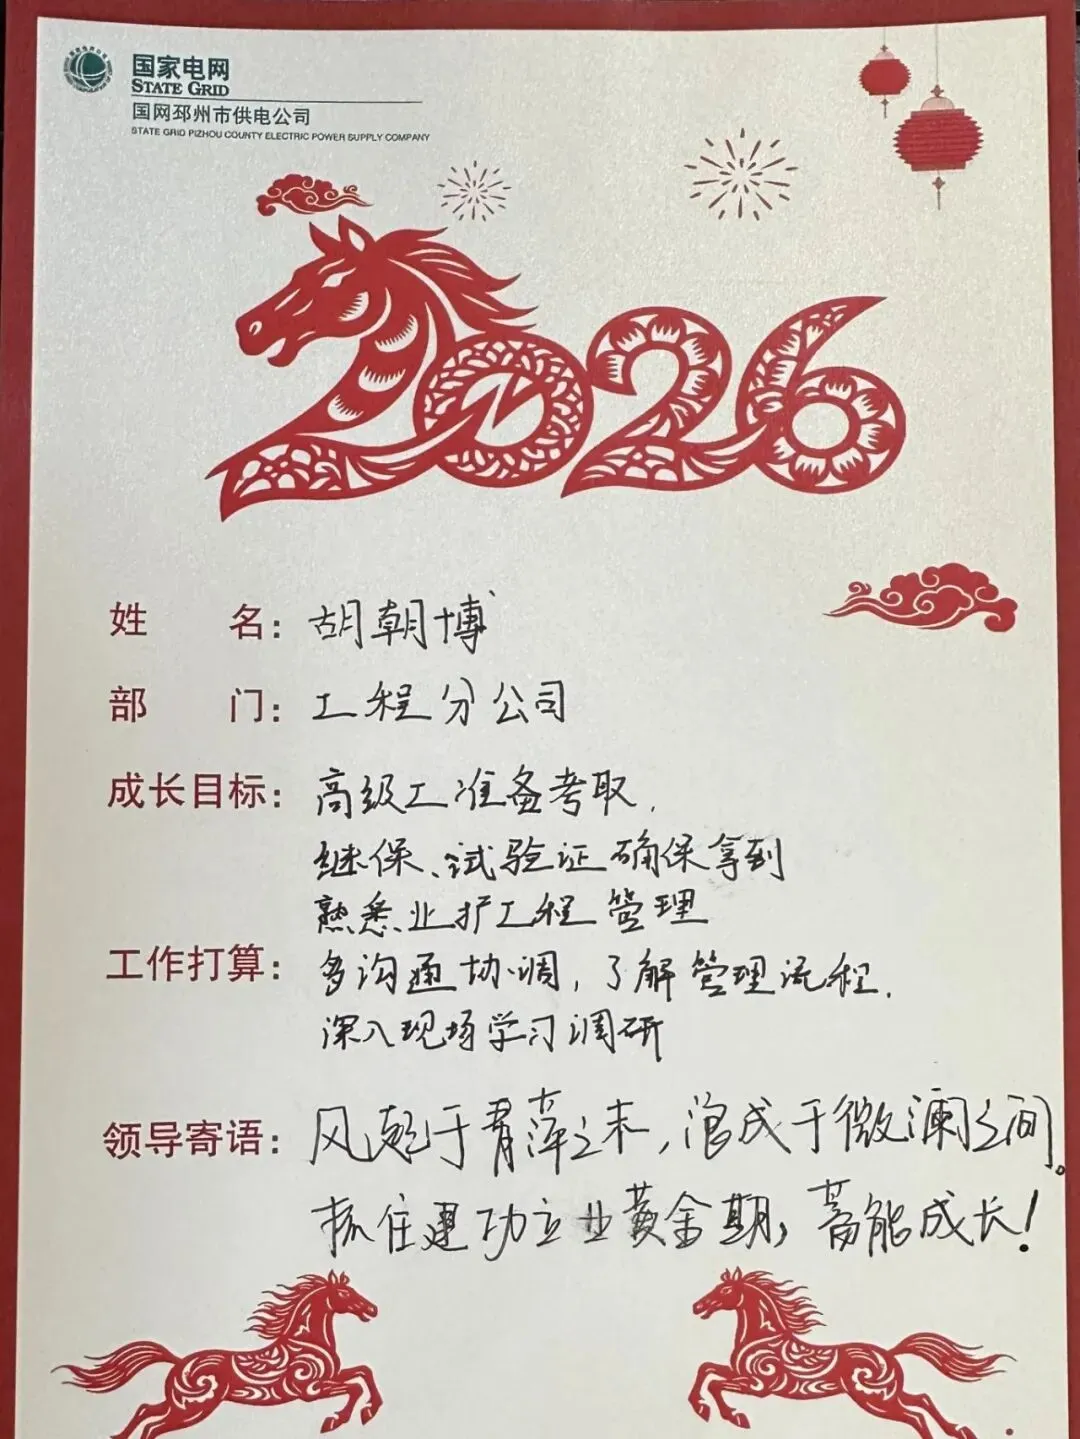 国家电网
STATE GRID
国网邳州市供电公司
STATE GRID PIZHOU COUNTY ELECTRIC POWER SUPPLY COMPANY
2026
姓名：胡朝博
部门：工程分公司
成长目标：高级工准备考取，
继保、试验证确保拿到
熟悉业扩工程管理
工作打算：多沟通协调，了解管理流程，
深入现场学习调研
领导寄语：风起于青萍之末，浪成于微澜之间。
抓住建功立业黄金期，蓄能成长！